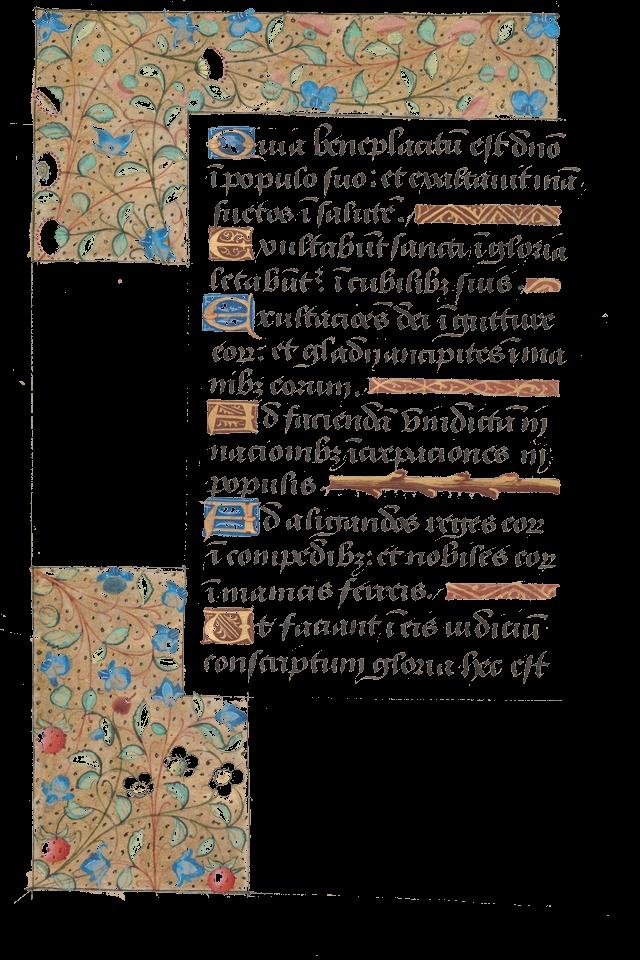 Quia beneplacitū est dño
ī populo suo: et exaltauit mā
suetos ī salutē.
Exultabūt sancti ī gloria
letabūt᷑ ī cubilibꝫ suis.
Exultacioēs dei ī gutture
eoꝝ: et gladij ancipites ī ma
nibꝫ eorum.
Ad faciendā vindictā in
nacionibꝫ īcrepaciones in
populis.
Ad aligandos reges eoꝝ
ī compedibꝫ: et nobiles eoꝝ
ī manicis ferreis.
Et faciant ī eis iudiciū
conscriptum gloria hec est